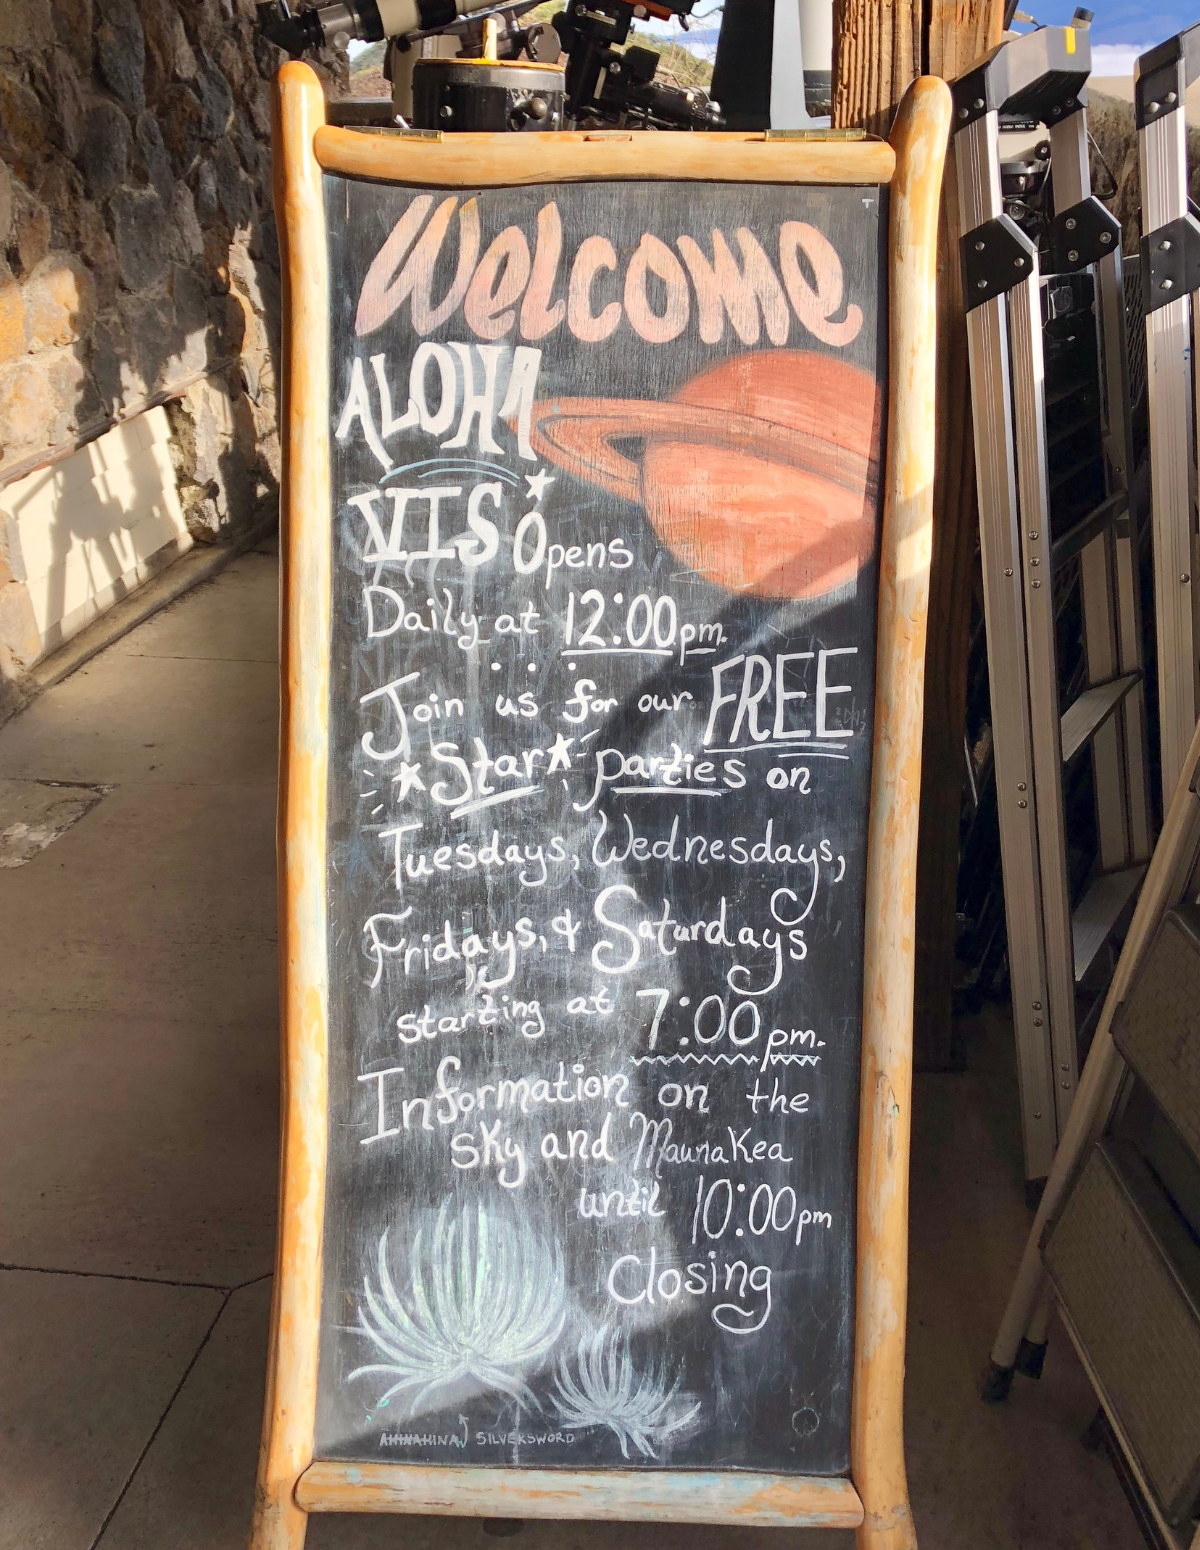 Welcome
ALOHA
VIS Opens
Daily at 12:00pm.
Join us for our FREE
Star parties on
Tuesdays, Wednesdays,
Fridays, & Saturdays
starting at 7:00pm.
Information on the
sky and MaunaKea
until 10:00pm
Closing
AHINAHINA, SILVERSWORD